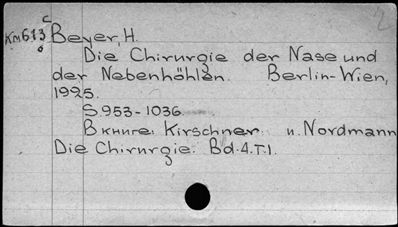 2
c
Км613 Beyer, H.
Die Chirurgie der Nase und
der Nebenhöhlen. Berlin-Wien,
1925.
S. 953-1036.
В книге: Kirschner u. Nordmann
Die Chirurgie. Bd. 4. T. 1.